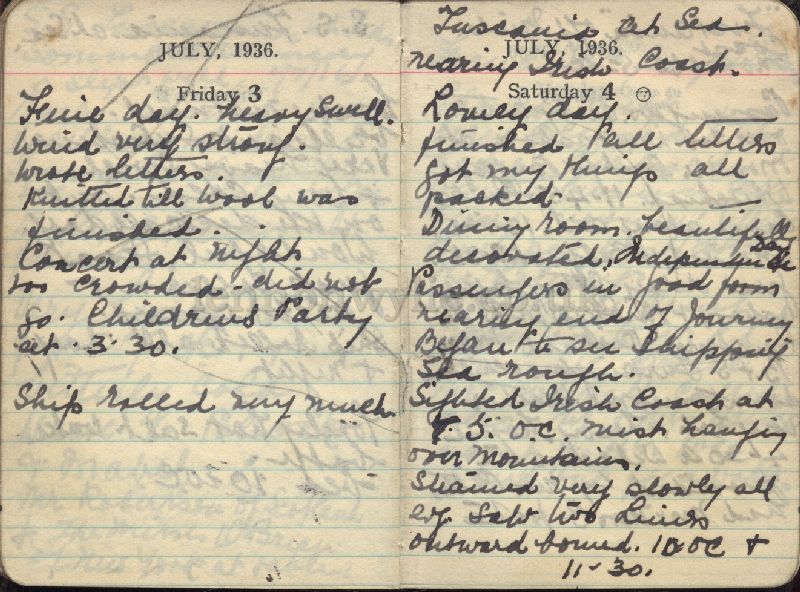 JULY, 1936.
Friday 3
Fine day. heavy swell.
wind very strong.
wrote letters.
Knitted till wool was
finished.
Concert at night
too crowded - did not
go. Childrens Party
at 3.30.
Ship rolled very much
Tuscania at Sea.
JULY, 1936.
nearing Irish Coast.
Saturday 4
Lovely day.
finished all letters
got my things all
packed
Dining room beautifully
decorated, Independence Day
Passengers in good form
nearing end of Journey
Began to see Shipping
Sea rough.
Sighted Irish Coast at
5. oc. mist hanging
over mountains.
Steamed very slowly all
evg saw two Liners
outward bound. 10 oc +
11-30.